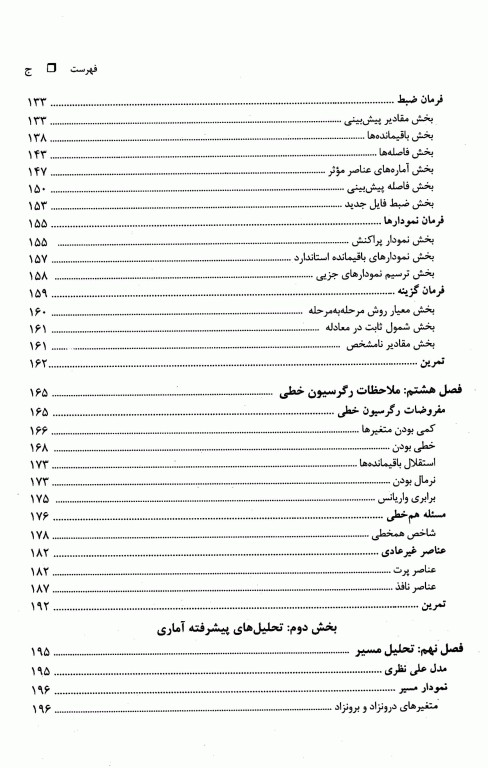 فهرست ❒ ج
فرمان ضبط ۱۳۳
بخش مقادیر پیش‌بینی ۱۳۳
بخش باقیمانده‌ها ۱۳۸
بخش فاصله‌ها ۱۴۳
بخش آماره‌های عناصر مؤثر ۱۴۷
بخش فاصله پیش‌بینی ۱۵۰
بخش ضبط فایل جدید ۱۵۳
فرمان نمودارها ۱۵۵
بخش نمودار پراکنش ۱۵۵
بخش نمودارهای باقیمانده استاندارد ۱۵۷
بخش ترسیم نمودارهای جزیی ۱۵۸
فرمان گزینه ۱۵۹
بخش معیار روش مرحله‌به‌مرحله ۱۶۰
بخش شمول ثابت در معادله ۱۶۱
بخش مقادیر نامشخص ۱۶۱
تمرین ۱۶۲
فصل هشتم: ملاحظات رگرسیون خطی ۱۶۵
مفروضات رگرسیون خطی ۱۶۵
کمی بودن متغیرها ۱۶۶
خطی بودن ۱۶۸
استقلال باقیمانده‌ها ۱۷۳
نرمال بودن ۱۷۳
برابری واریانس ۱۷۵
مسئله هم‌خطی ۱۷۶
شاخص همخطی ۱۷۸
عناصر غیرعادی ۱۸۲
عناصر پرت ۱۸۲
عناصر نافذ ۱۸۷
تمرین ۱۹۲
بخش دوم: تحلیل‌های پیشرفته آماری
فصل نهم: تحلیل مسیر ۱۹۵
مدل علی نظری ۱۹۵
نمودار مسیر ۱۹۶
متغیرهای درونزاد و برونزاد ۱۹۶